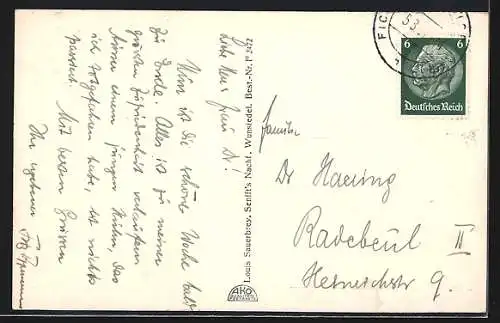 Liebe Frau Dr!
Nun ist die schöne Woche bald
zu Ende. Alles ist zu meiner
größten Zufriedenheit verlaufen
Ausser einem jungen Huhn, das
ich totgefahren habe, ist nichts
passiert. Mit besten Grüssen
Ihr ergebener
Louis Sauerbrey, Senfft's Nachf., Wunsiedel. Best.-Nr. P 2472
AKO
FICH
6 6
Deutsches Reich
Familie
Dr Haering
Radebeul II
Heinrichstr 9.